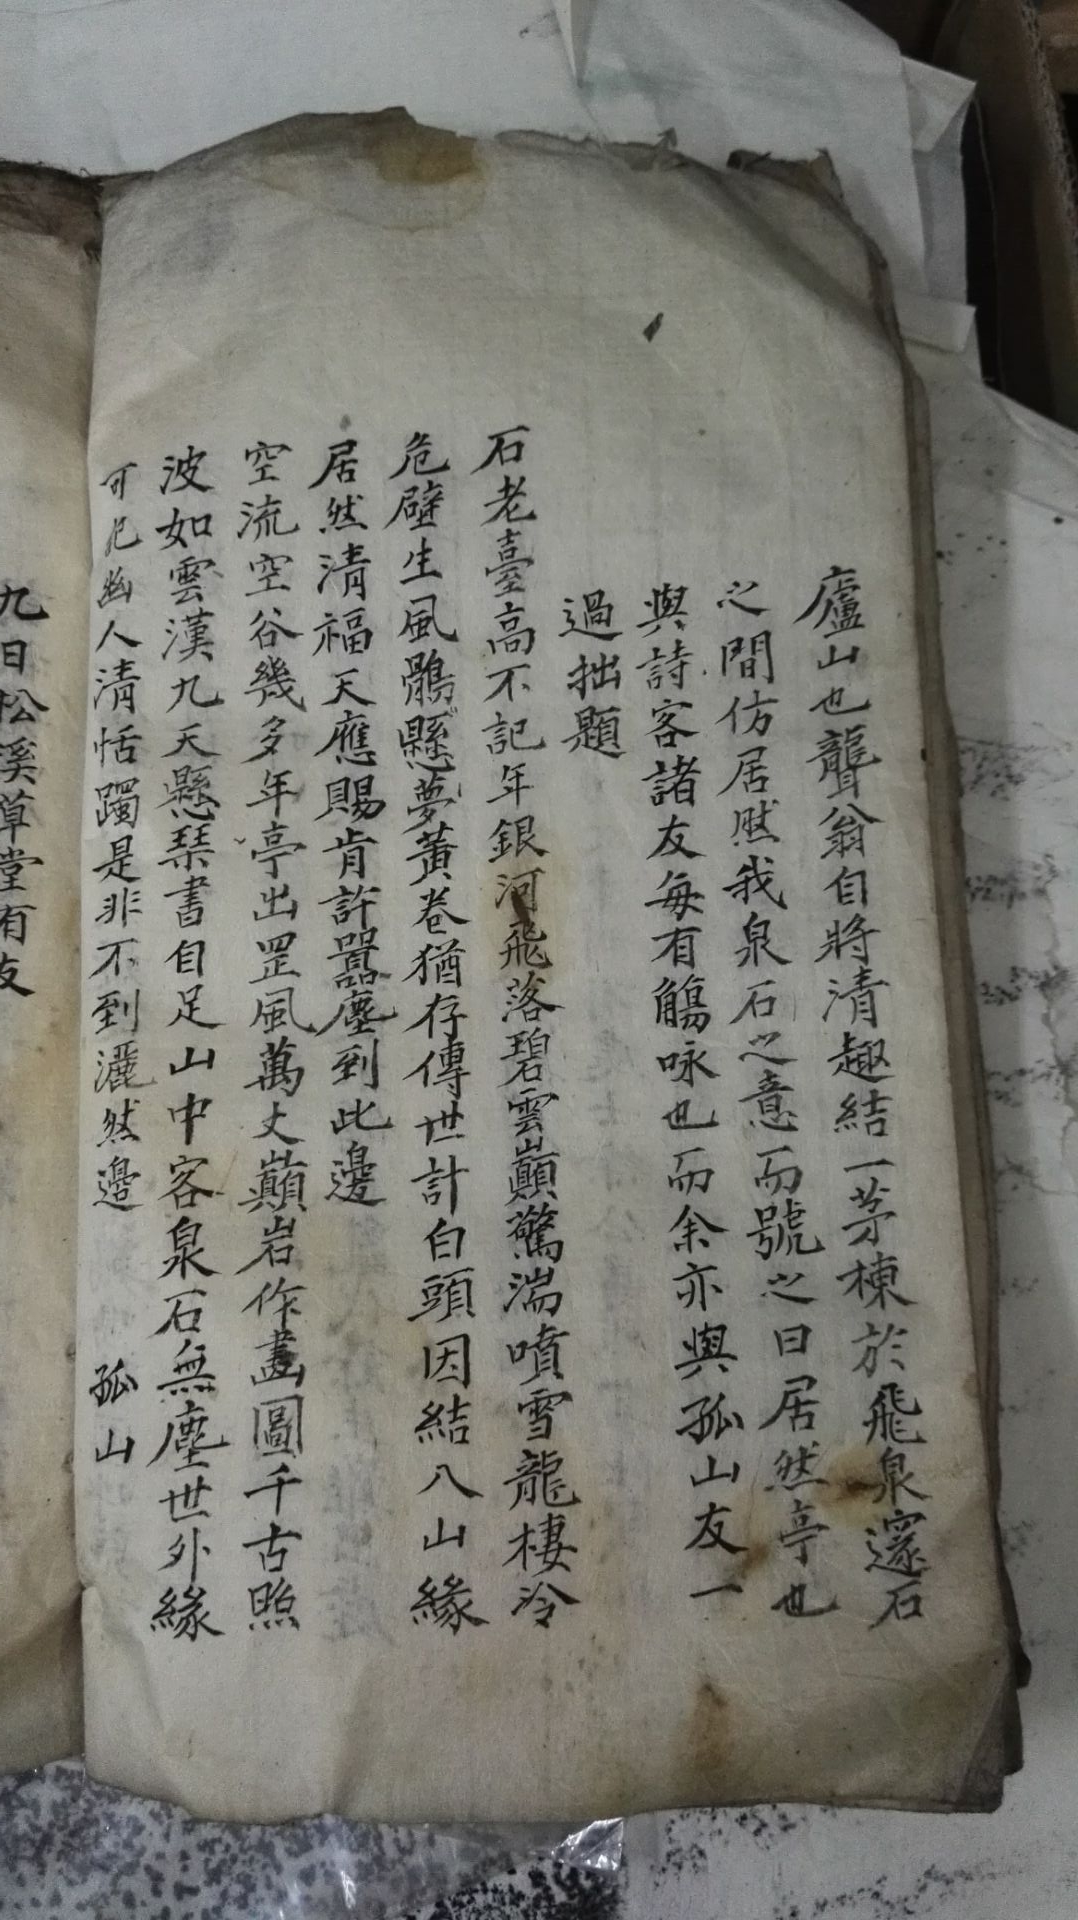 廬山也聾翁自將清趣結一茅棟於飛泉邃石
之間仿居然我泉石之意而號之曰居然亭也
與詩客諸友每有觴咏也而余亦與孤山友一
過拙題
石老臺高不記年銀河飛落碧雲巔驚湍噴雪龍棲冷
危壁生風鶻懸夢黃卷猶存傳世計白頭因結八山緣
居然清福天應賜肯許囂塵到此邊
空流空谷幾多年亭出罡風萬丈巔岩作畫圖千古照
波如雲漢九天懸琹書自足山中客泉石無塵世外緣
可尼幽人清恬躅是非不到灑然邊 孤山
九日松溪草堂有友